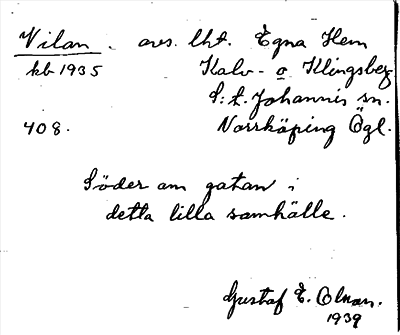 Vilan. avs. lht. Egna Hem
kb 1935 Kalv- o Klingsberg
S:t. Johannis sn.
408. Norrköping Ögl.
Söder om gatan i
detta lilla samhälle.
Gustaf E. Olson.
1939